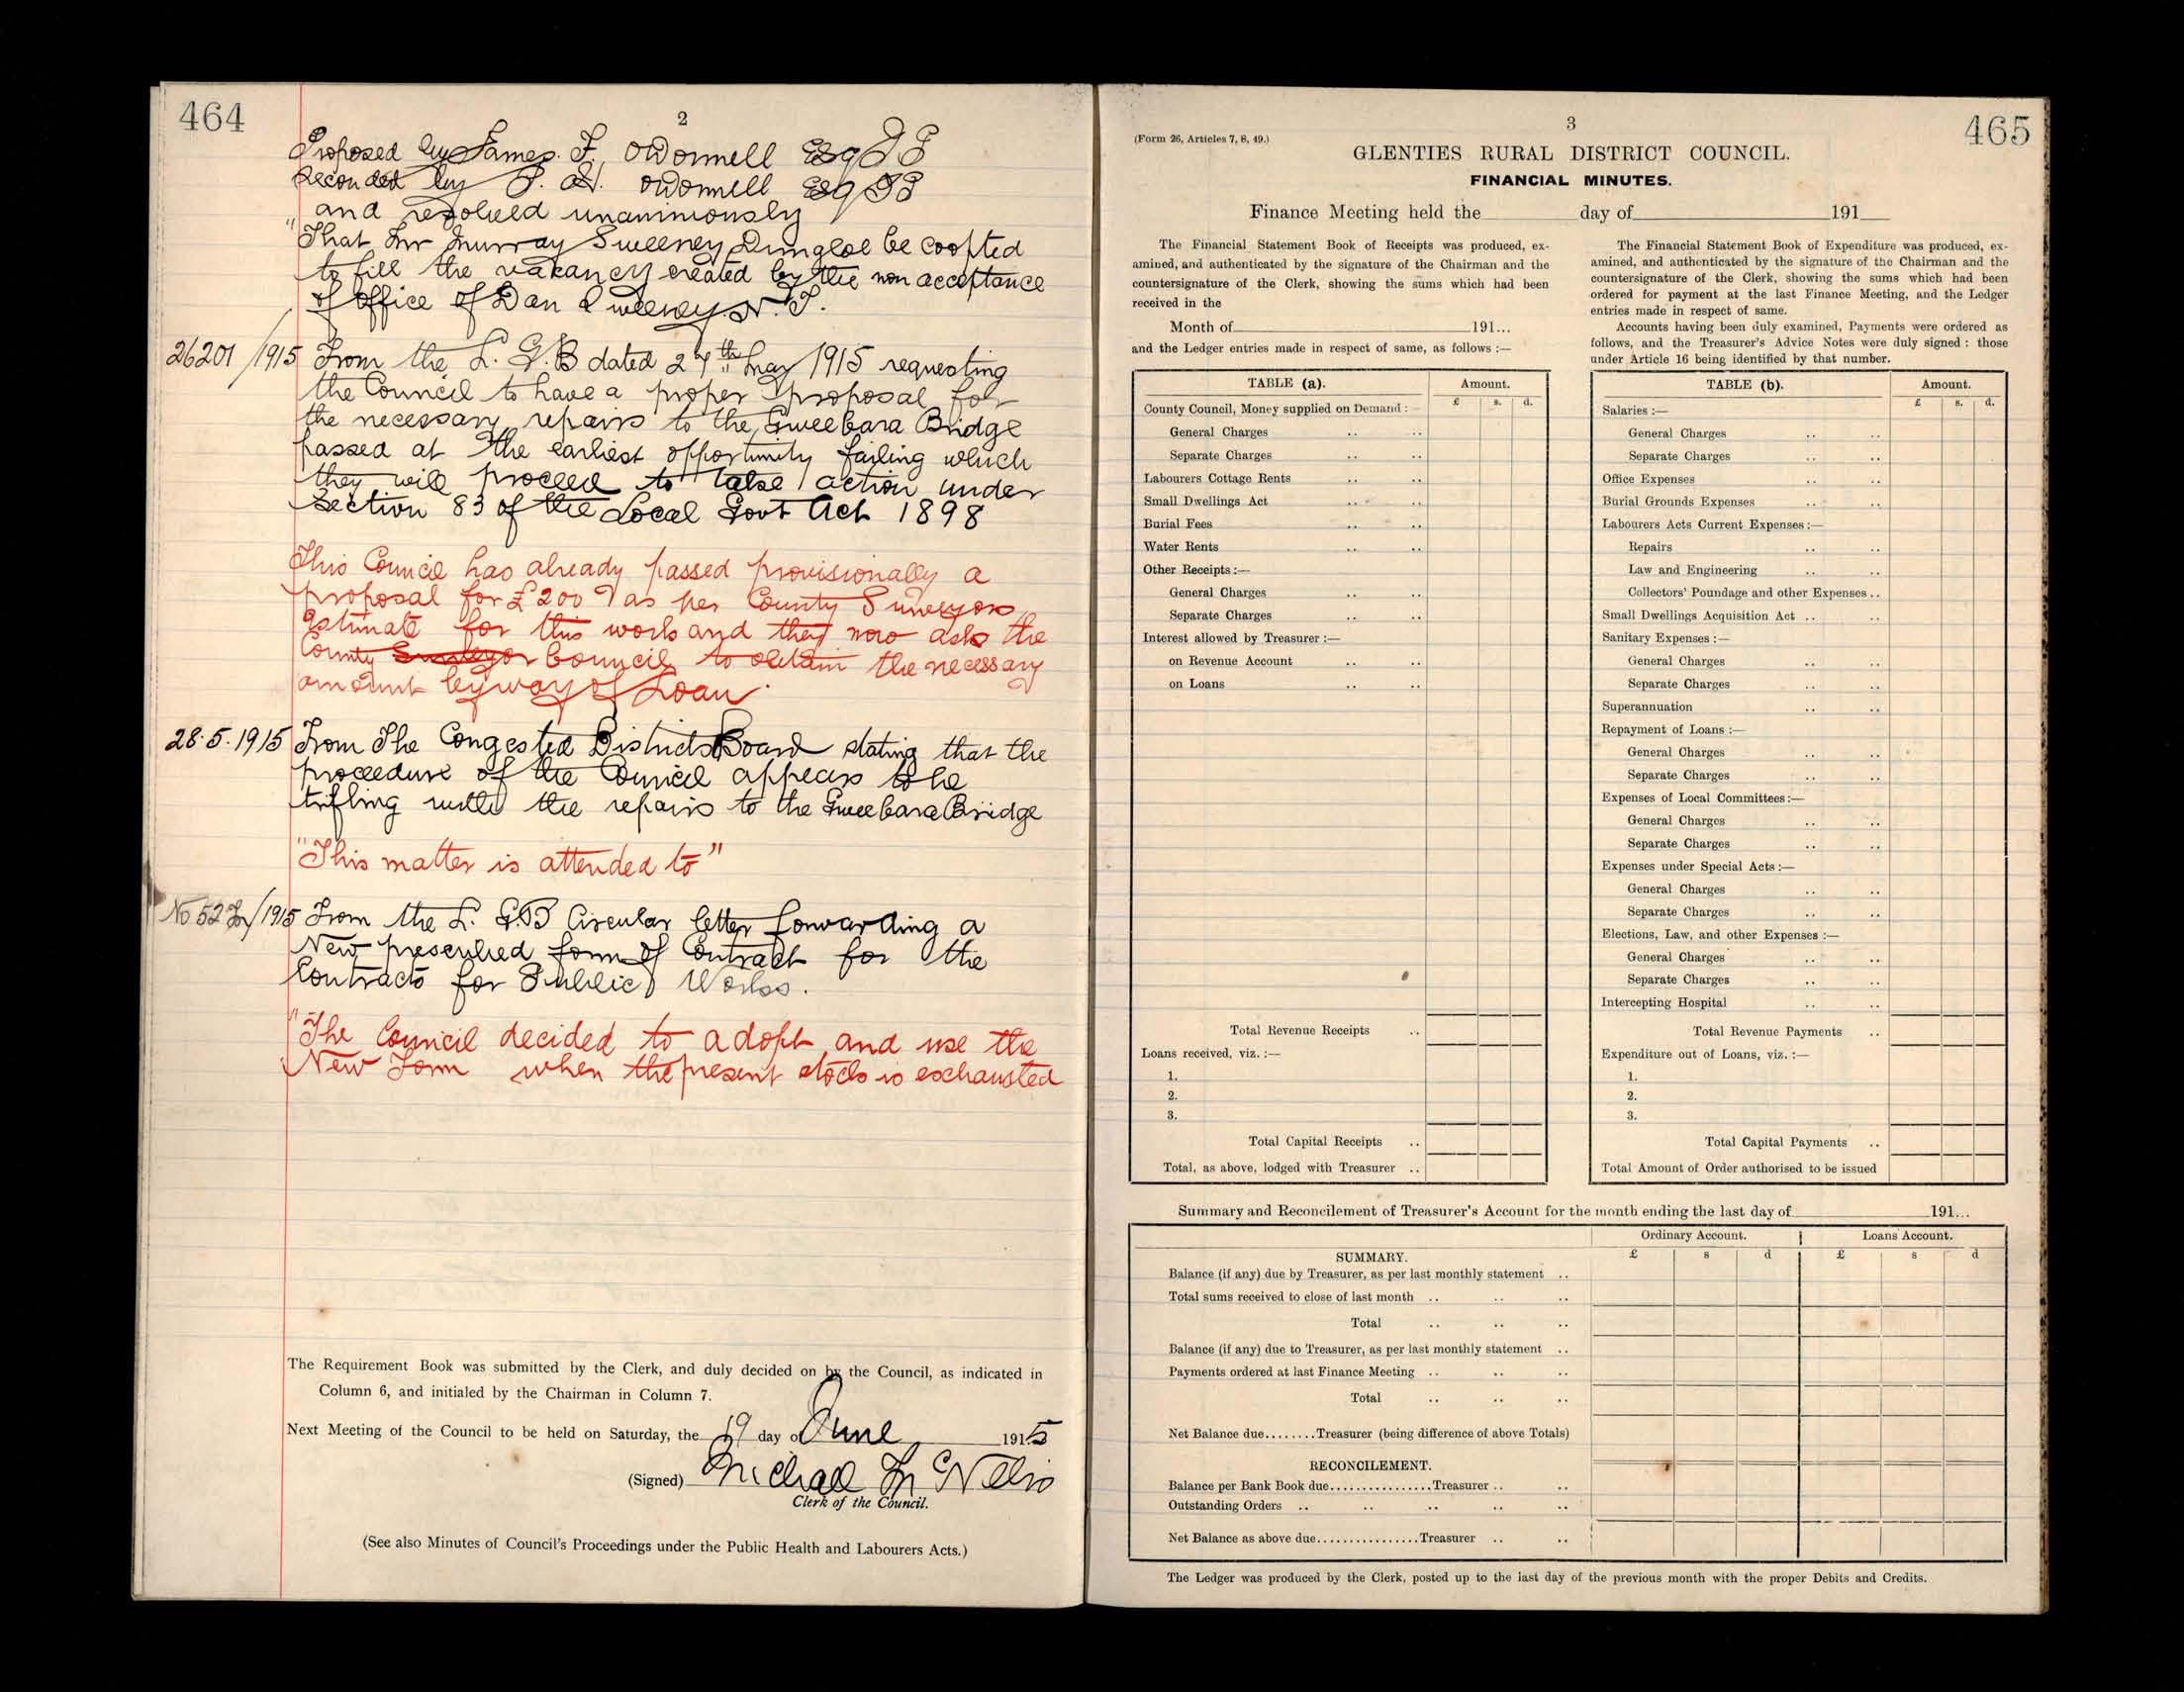 464
2
Proposed by James. F. O'Donnell Esq J P
Seconded by O'Donnell Esq J P
and resolved unanimously
"That Mr Murray Sweeney Dungloe be coopted
to fill the vacancy created by the non acceptance
of office of Dan Sweeney N. T.
26201/1915 From the L. G. B dated 27th May 1915 requesting
the Council to have a proper proposal for
the necessary repairs to the Gweebara Bridge
passed at the earliest opportunity failing which
they will proceed to take action under
Section 83 of the Local Govt Act 1898
This Council has already passed provisionally a
proposal for £200 as per County Surveyors
Estimate for this work and they now ask the
County Surveyor Council to obtain the necessary
amount by way of Loan.
28.5.1915 From The Congested Districts Board stating that the
proceedure of the Council appears to be
trifling with the repairs to the Gweebara Bridge
"This matter is attended to"
No 52 /1915 From the L. G. B Circular letter forwarding a
New prescribed form of Contract for the
Contracts for Public Works.
"The Council decided to adopt and use the
New Form when the present stock is exchausted
The Requirement Book was submitted by the Clerk, and duly decided on by the Council, as indicated in
Column 6, and initialed by the Chairman in Column 7.
Next Meeting of the Council to be held on Saturday, the 19 day of June 1915
(Signed) Michael McNelis
Clerk of the Council.
(See also Minutes of Council's Proceedings under the Public Health and Labourers Acts.)
3
465
(Form 26, Articles 7, 8, 49.)
GLENTIES RURAL DISTRICT COUNCIL.
FINANCIAL MINUTES.
Finance Meeting held the day of 191
The Financial Statement Book of Receipts was produced, ex-
amined, and authenticated by the signature of the Chairman and the
countersignature of the Clerk, showing the sums which had been
received in the
Month of 191...
and the Ledger entries made in respect of same, as follows :—
TABLE (a). Amount.
£ s. d.
County Council, Money supplied on Demand :—
General Charges .. ..
Separate Charges .. ..
Labourers Cottage Rents .. ..
Small Dwellings Act .. ..
Burial Fees .. ..
Water Rents .. ..
Other Receipts :—
General Charges .. ..
Separate Charges .. ..
Interest allowed by Treasurer :—
on Revenue Account .. ..
on Loans .. ..
Total Revenue Receipts ..
Loans received, viz. :—
1.
2.
3.
Total Capital Receipts ..
Total, as above, lodged with Treasurer ..
The Financial Statement Book of Expenditure was produced, ex-
amined, and authenticated by the signature of the Chairman and the
countersignature of the Clerk, showing the sums which had been
ordered for payment at the last Finance Meeting, and the Ledger
entries made in respect of same.
Accounts having been duly examined, Payments were ordered as
follows, and the Treasurer's Advice Notes were duly signed : those
under Article 16 being identified by that number.
TABLE (b). Amount.
£ s. d.
Salaries :—
General Charges .. ..
Separate Charges .. ..
Office Expenses .. ..
Burial Grounds Expenses .. ..
Labourers Acts Current Expenses :—
Repairs .. ..
Law and Engineering .. ..
Collectors' Poundage and other Expenses ..
Small Dwellings Acquisition Act .. ..
Sanitary Expenses :—
General Charges .. ..
Separate Charges .. ..
Superannuation .. ..
Repayment of Loans :—
General Charges .. ..
Separate Charges .. ..
Expenses of Local Committees :—
General Charges .. ..
Separate Charges .. ..
Expenses under Special Acts :—
General Charges .. ..
Separate Charges .. ..
Elections, Law, and other Expenses :—
General Charges .. ..
Separate Charges .. ..
Intercepting Hospital .. ..
Total Revenue Payments ..
Expenditure out of Loans, viz. :—
1.
2.
3.
Total Capital Payments ..
Total Amount of Order authorised to be issued
Summary and Reconcilement of Treasurer's Account for the month ending the last day of 191...
Ordinary Account. Loans Account.
SUMMARY. £ s d £ s d
Balance (if any) due by Treasurer, as per last monthly statement ..
Total sums received to close of last month .. .. ..
Total .. .. ..
Balance (if any) due to Treasurer, as per last monthly statement ..
Payments ordered at last Finance Meeting .. .. ..
Total .. .. ..
Net Balance due........Treasurer (being difference of above Totals)
RECONCILEMENT.
Balance per Bank Book due................Treasurer .. ..
Outstanding Orders .. .. .. .. ..
Net Balance as above due................Treasurer .. ..
The Ledger was produced by the Clerk, posted up to the last day of the previous month with the proper Debits and Credits.